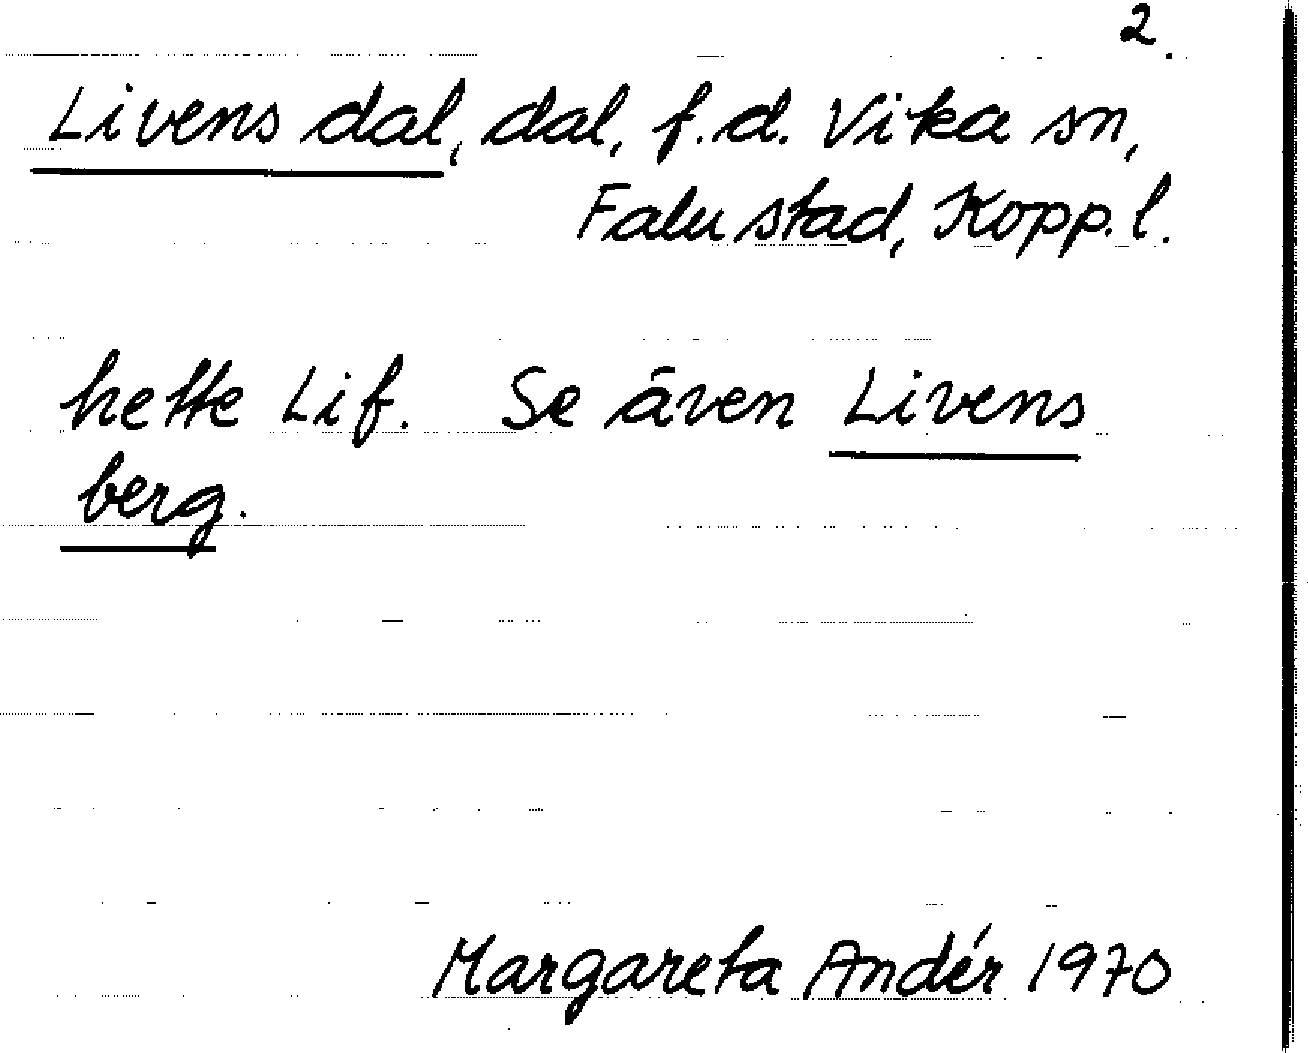 2.
Livens dal, dal, f.d. Vika sn,
Falu stad, Kopp. l.
hette Lif. Se även Livens
berg.
Margareta Andér 1970